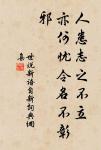 人患志之不立
亦何忧令名不彰
邪
世说新语自新词典网
集